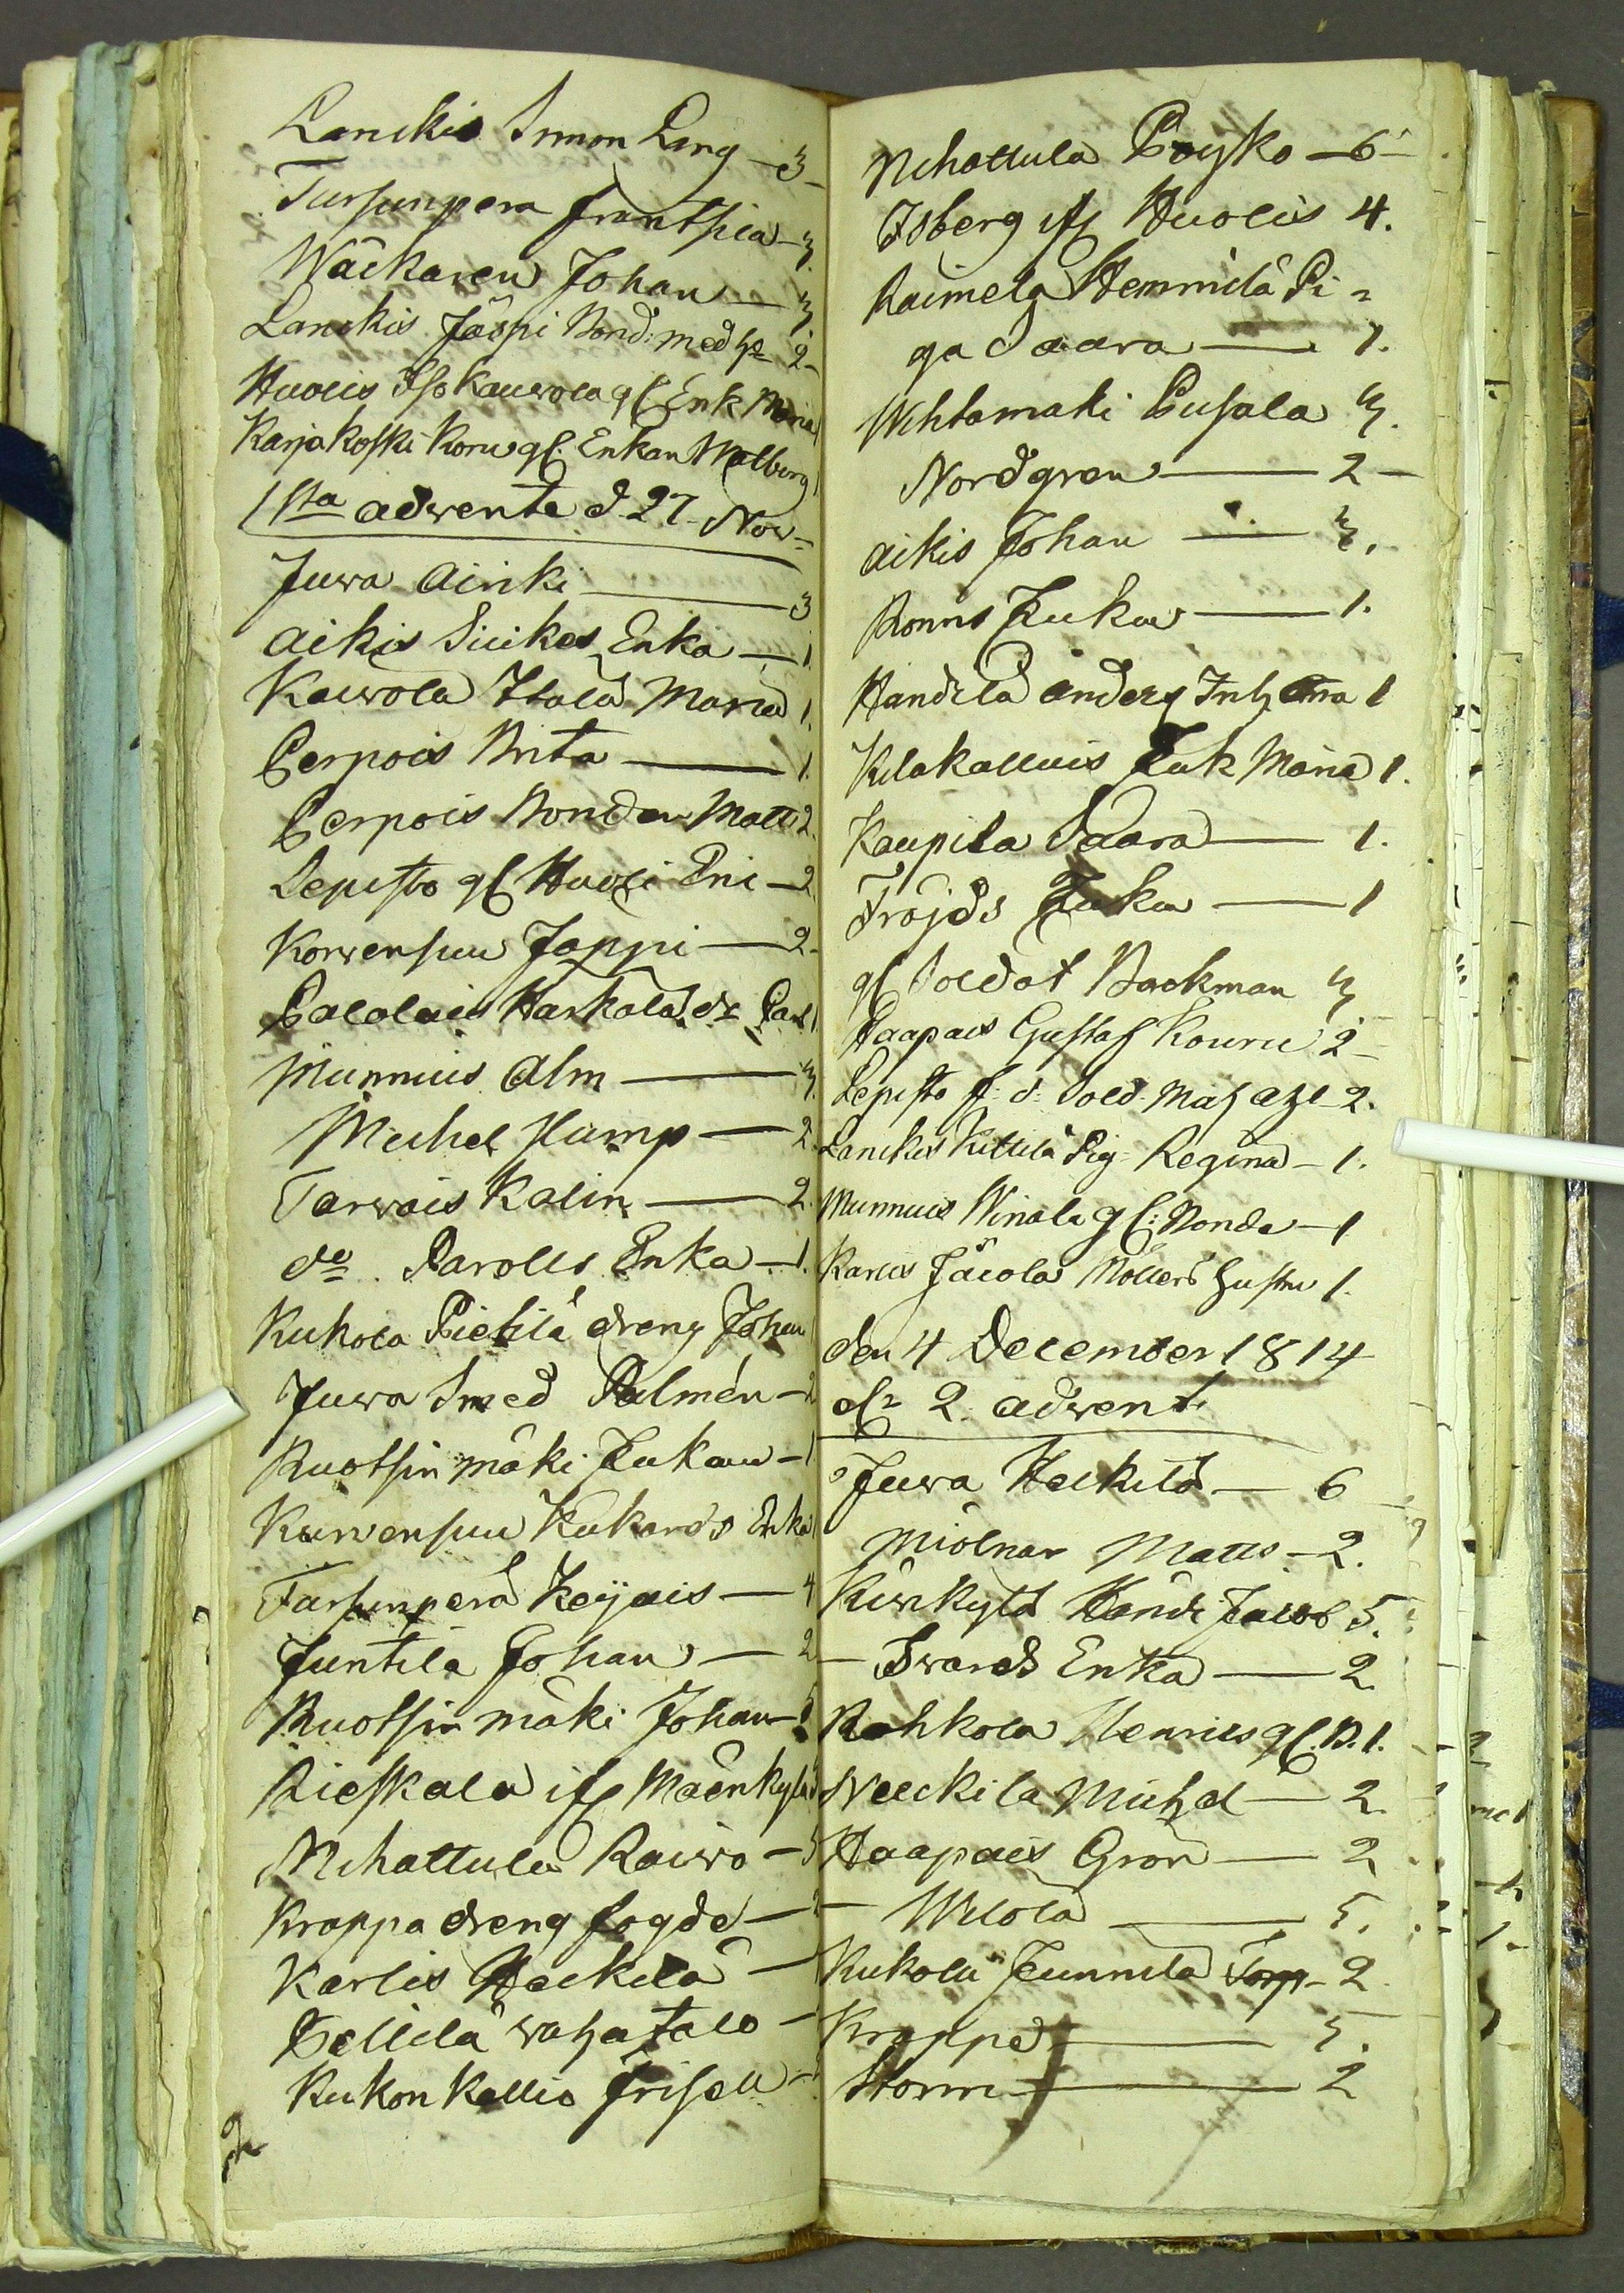 Lanckis Simon Lang — 3
Tursunpera Frantsila — 3.
Wäckaren Johan — 3
Lanckis Jöspi Bond: med h 2
Huolis Iso Kauwola gl Enk Maria
Karjakoski Korw gl. Enkan Walborg
1sta adwente d. 27. Now=
Juwa Ainki — 3
Aikis Sicikas Enka — 1.
Kauwola Itala Maria 1.
Perpois Brita — 1.
Perpois Bondan Matts 2.
Lepisto gl Huori Eric — 2
Korwensuu Joppi — 2.
Palolais Harkala dr Paul 1
Munnuis Alm — 3.
Michel Kump — 2.
Tarwais Kalin — 2.
do. Parolis Enka — 1.
Kukola Pietilä dreng Johan
Juwa Smed Palmén — 2
Ruotsin mäki Jukan — 1
Kurwensuu Kukars Enka
Tursunperä Keijais — 4
Juntila Johan — 2
Ruotsin mäki Johan
Rieskala ifr Mäenkylä
Nihattula Raiwo — 5
Kroppa dreng fogde — 2
Karlis Heikilä —
Pellilä waha talo —
Kukonkallio Frisell
Nihattula Poyko — 6
Isberg ifr Huolis 4.
Raimela Hemmilä Pi=
ga Saara — 1.
Wihtamäki Pusala 3.
Nordgren — 2 —
Aikis Johan — 3.
Ronns Enkan — 1.
Handela Anders Inh Anna 1
Kilakallius Enk Maria 1.
Kaupila Saara — 1.
Fröjds Enkan — 1
gl Soldat Backman 3
Haapais Gustaf Kouru 2 —
Lepisto f: d: Sold. 2.
Lanckis Kittilä Pig= Regina — 1.
Munnuis Winala gl: Bonde — 1
Karlis Jäcola Möllers hustru 1.
den 4 December 1814
dr 2. adwent
Juwa Heikilä — 6
Miölnar Matts — 2.
Kirkkylä Jacob 5.
— Swards Enka — 2
Rahkola Henrics gl. B. 1.
Neckila Michel — 2.
Haapais Grön — 2
— Wilola — 5.
Kukola Junnila Torp — 2
Kroppa — 3.
Storm — 2